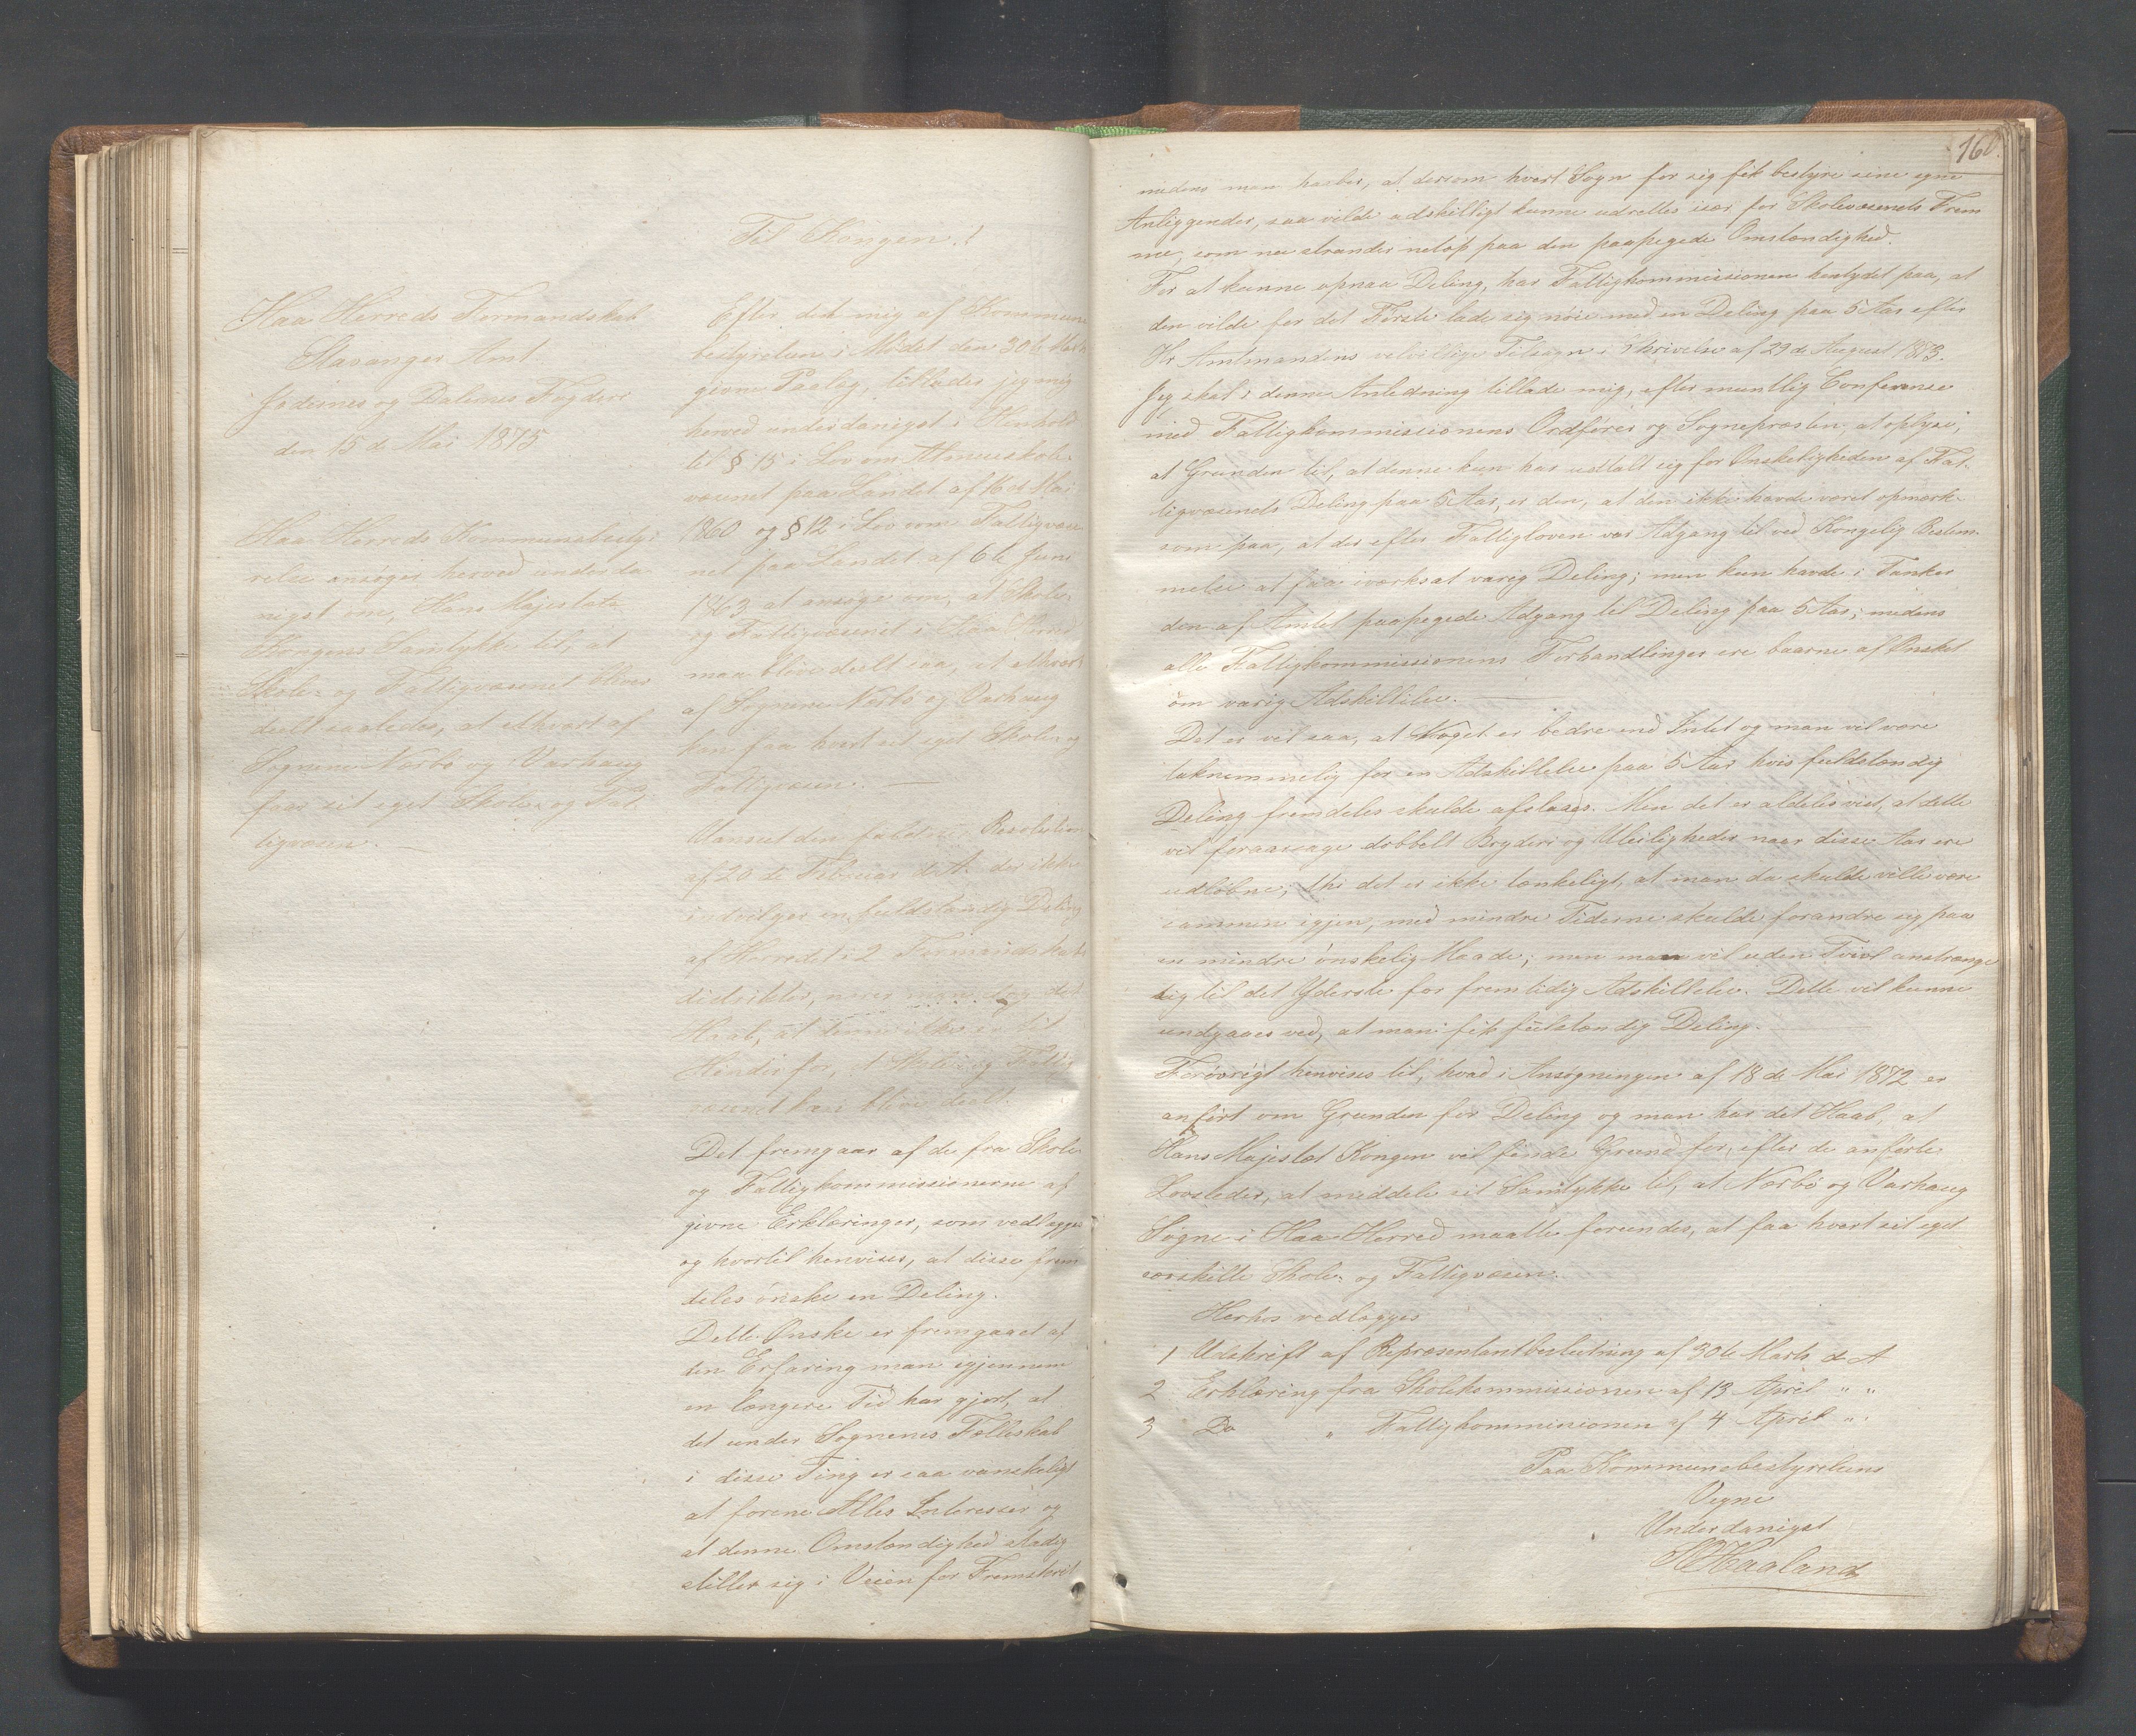 Til Kongen!
Haa Herreds Formandskab
Stavanger Amt.
Jæderens og Dalernes Fogderi
den 15de Mai 1875
Haa Herreds Kommunebesty-
relse ansøger herved underda-
nigst om, Hans Majestæts
Kongens Samtykke til, at
Skole- og Fattigvæsenet bliver
deelt saaledes, at ethvert af
Sognene Nærbø og Varhaug
faar sit eget Skole- og Fat-
tigvæsen. —
Efter det mig af Kommune
bestyrelsen i Mødet den 30te Marts
givne Paalæg, tillader jeg mig
herved underdanigst i Henhold
til § 15 i Lov om Almueskole-
væsenet paa Landet af 16de Mai
1860 og § 12 i Lov om Fattigvæse
net paa Landet af 6te Juni
1863 at ansøge om, at Skole-
og Fattigvæsenet i Haa Herred
maa blive deelt saa, at ethvert
af Sognene Nærbø og Varhaug
kan faa hvert sit eget Skole- og
Fattigvæsen. —
Uanseet den faldne Resolution
af 20de Februar d. A. der ikke
indvilger en fuldstændig Deling
af Herredet i 2 Formandskabs
distrikter, nærer man dog det
Haab, at denne ikke er til
Hinder for, at Skole- og Fattig
væsenet kan blive deelt.
Det fremgaar af de fra Skole
og Fattigkommissionerne af
givne Erklæringer, som vedlægges
og hvortil henvises, at disse frem
deles ønske en Deling.
Dette Ønske er fremgaaet af
den Erfaring man igjennem
en længere Tid har gjort, at
det under Sognenes Fælleskab
i disse Ting er saa vanskeligt
at forene Alles Interesser og
at denne Omstændighed stadig
stiller sig i Veien for Fremskrit
160.
medens man haaber, at dersom hvert Sogn for sig fik bestyre sine egne
Anliggender, saa vilde adskilligt kunne udrettes især for Skolevæsenets Frem
me, som nu strander netop paa den paapegede Omstændighed.
For at kunne opnaa Deling, har Fattigkommissionen hentydet paa, at
den vilde for det Første lade sig nøie med en Deling paa 5 Aar efter
Hr Amtmandens velvillige Tilsagn i Skrivelse af 29de August 1873.
Jeg skal i denne Anledning tillade mig, efter muntlig Conference
med Fattigkommissionens Ordfører og Sognepræsten, at oplyse,
at Grunden til, at denne kun har udtalt sig for Ønskeligheden af Fat-
tigvæsenets Deling paa 5 Aar, er den, at den ikke havde været opmærk-
som paa, at der efter Fattigloven var Adgang til ved Kongelig Bestem-
melse at faa iværksat varig Deling; men kun havde i Tanker
den af Amtet paapegede Adgang til Deling paa 5 Aar; medens
alle Fattigkommissionens Forhandlinger ere baarne af Ønsket
om varig Adskillelse. —
Det er vel saa, at Noget er bedre end Intet og man vil være
taknemmelig for en Adskillelse paa 5 Aar hvis fuldstændig
Deling fremdeles skulde afslaaes. Men det er aldeles vist, at dette
vil foraarsage dobbelt Bryderi og Uleiligheder naar disse Aar ere
udløbne; thi det er ikke tænkeligt, at man da skulde ville være
sammen igjen, med mindre Tiderne skulde forandre sig paa
en mindre ønskelig Maade; men man vil uden Tvivl anstrænge
sig til det Yderste for fremtidig Adskillelse. Dette vil kunne
undgaaes ved, at man fik fulstændig Deling.
Forøvrigt henvises til, hvad i Ansøgningen af 18de Mai 1872 er
anført om Grunden for Deling og man har det Haab, at
Hans Majestæt Kongen vil finde Grund for, efter de anførte
Lovsteder, at meddele sit Samtykke til, at Nærbø og Varhaug
Sogne i Haa Herred maatte forundes, at faa hvert sit eget
særskilte Skole- og Fattigvæsen.
Herhos vedlægges
1 Udskrift af Repræsentantbeslutning af 30te Marts d A
2 Erklæring fra Skolekommissionen af 13 April " "
3 Do " Fattigkommissionen af 4 April "
Paa Kommunebestyrelsens
Vegne
Underdanigst
Haaland